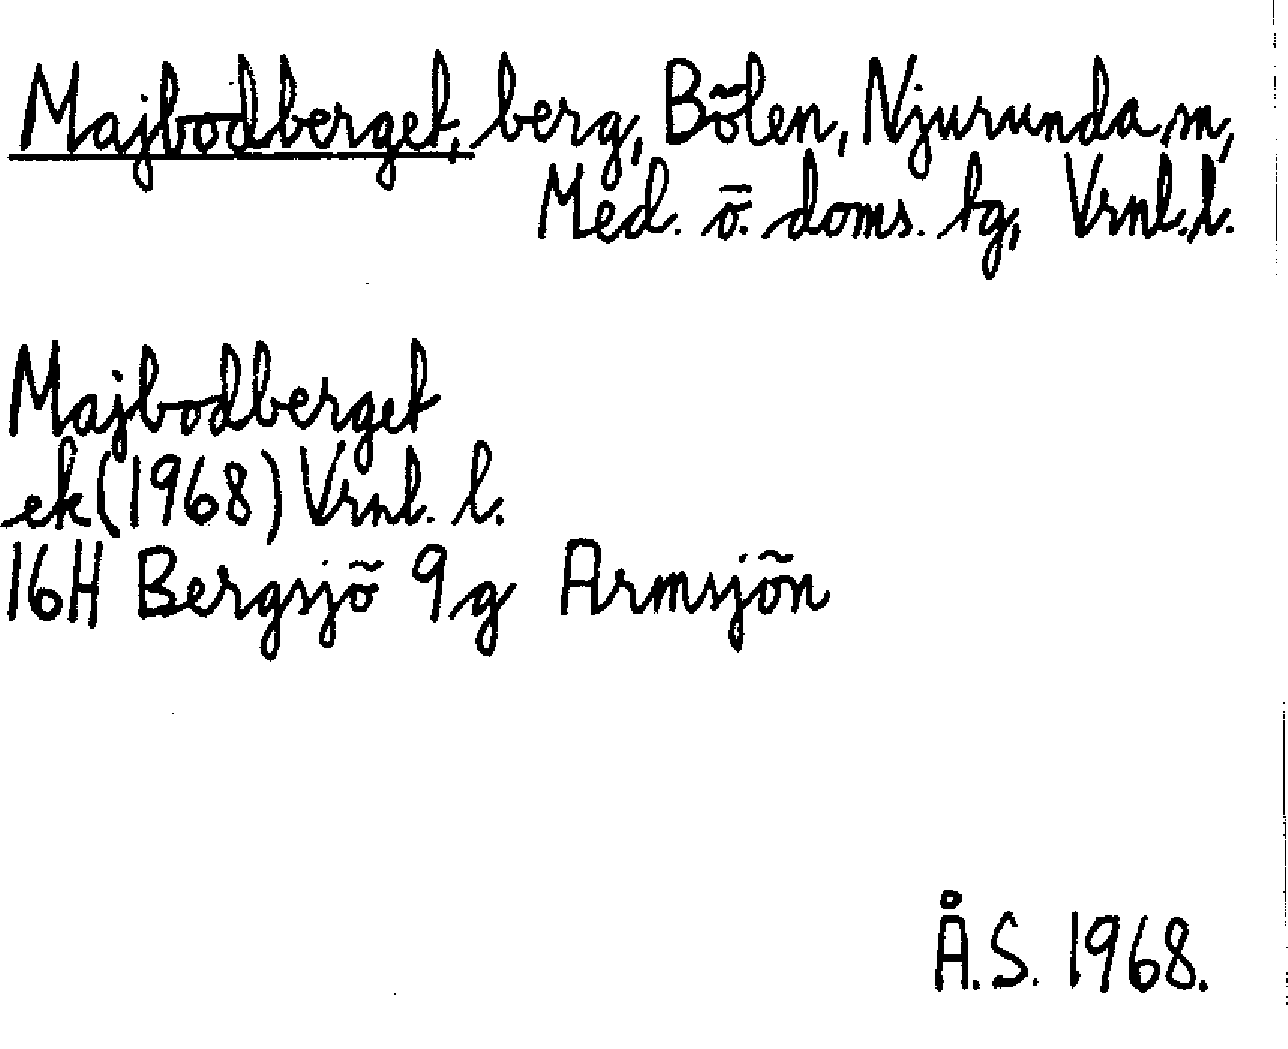 Majbodberget, berg, Bölen, Njurunda sn,
Med. ö. doms. tg, Vrnl. l.
Majbodberget
ek (1968) Vrnl. l.
16H Bergsjö 9g Armsjön
Å.S. 1968.